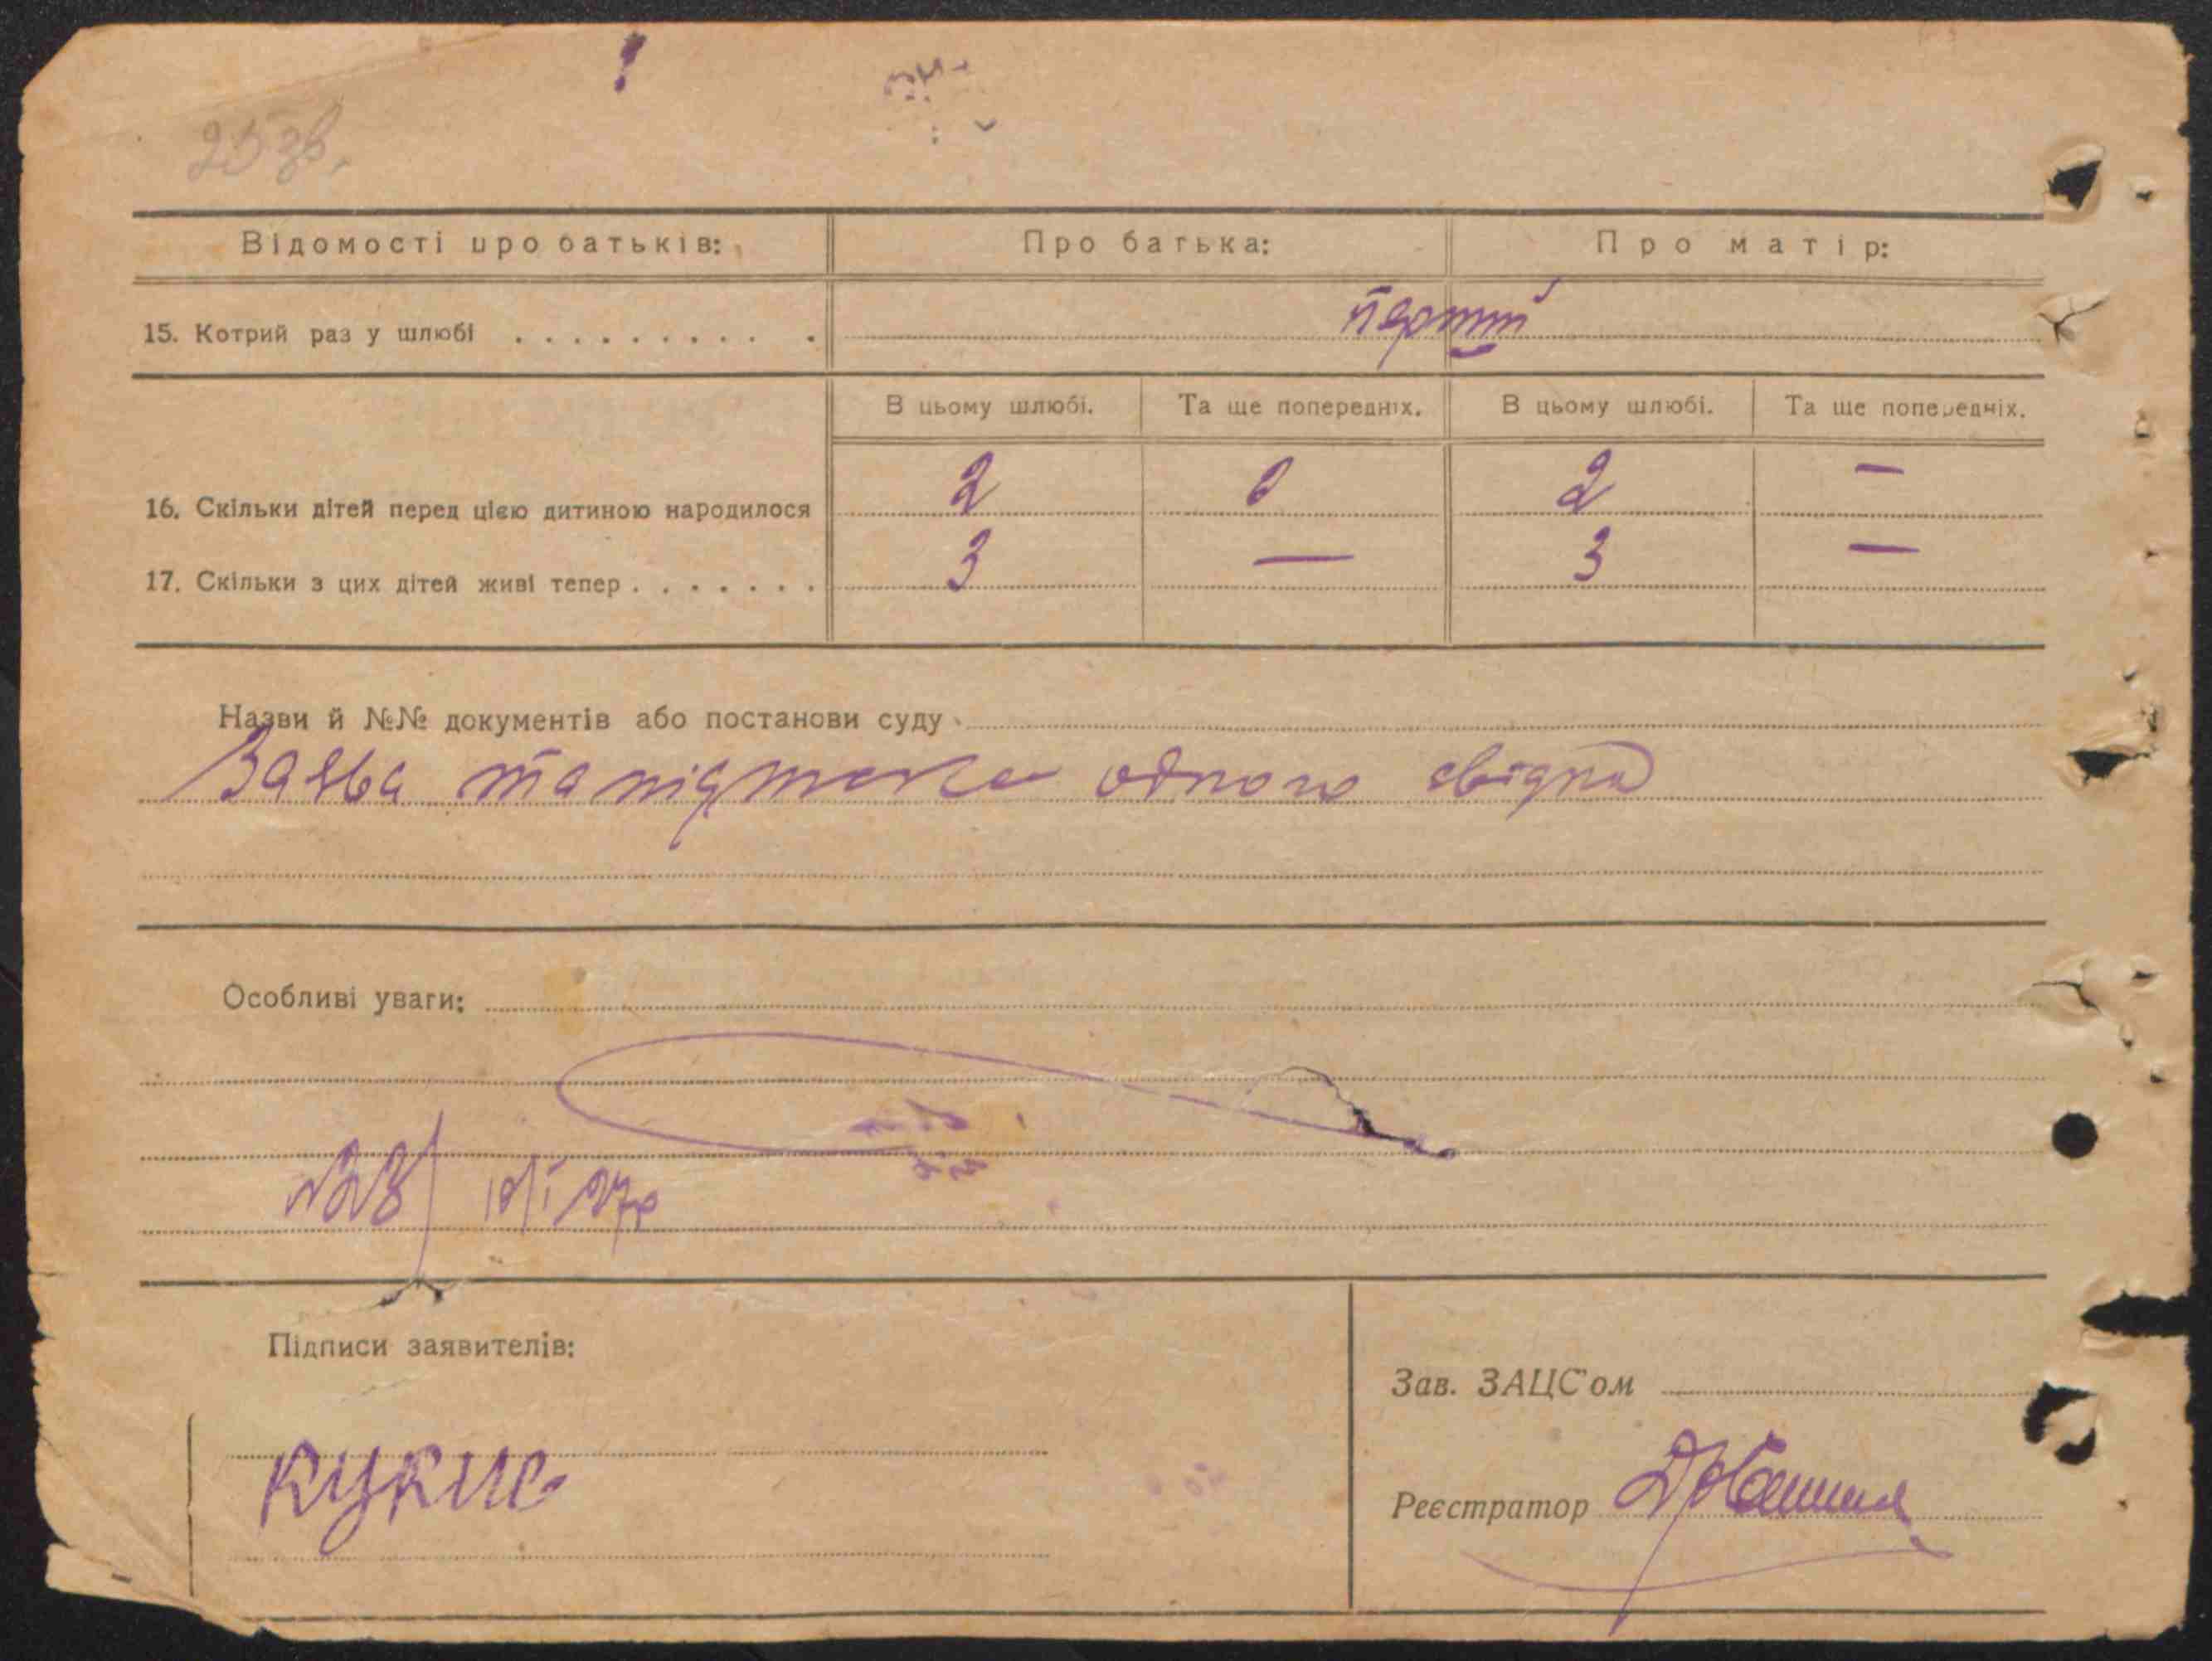 25 зв.
Відомості про батьків: Про батька: Про матір:
15. Котрий раз у шлюбі . . . . . . . . . . перший
В цьому шлюбі. Та ще попередніх. В цьому шлюбі. Та ще попередніх.
16. Скільки дітей перед цією дитиною народилося 2 0 2 —
17. Скільки з цих дітей живі тепер . . . . . . . 3 — 3 —
Назви й №№ документів або постанови суду
Заява та підписка одного свідка
Особливі уваги:
№28
Підписи заявителів:
Зав. ЗАЦС'ом
кукис
Реєстратор